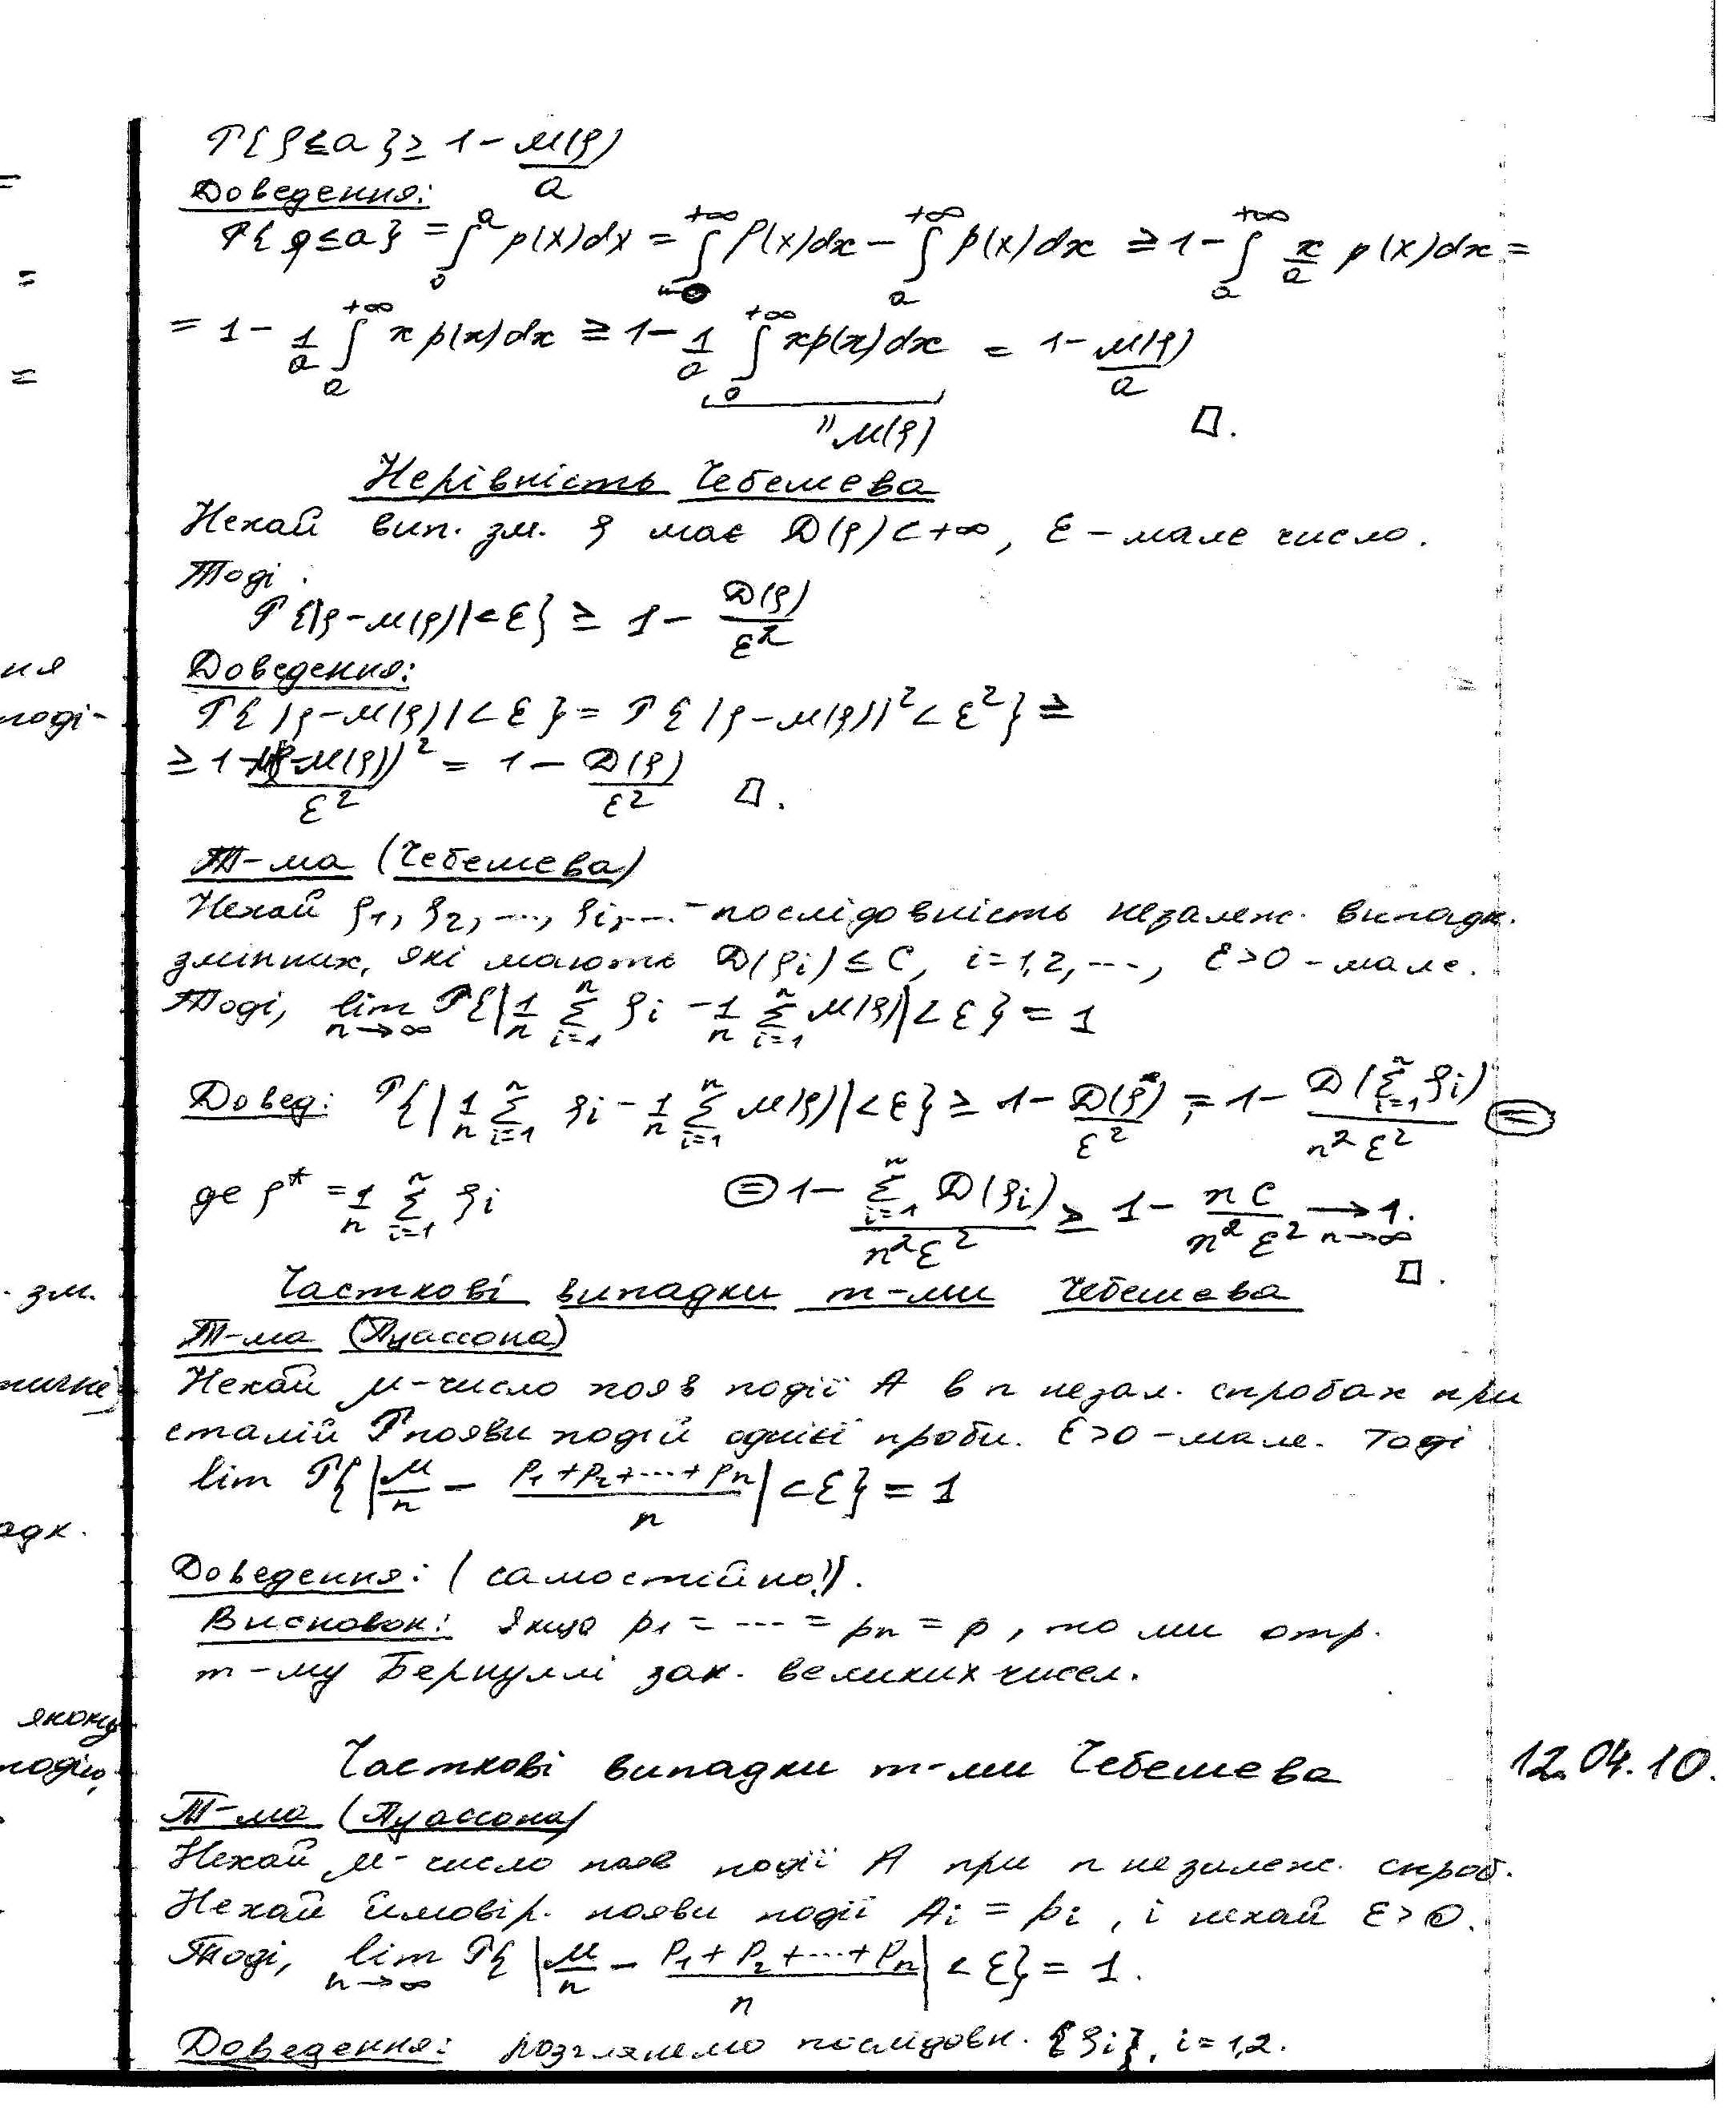 P{ξ ≤ a} ≥ 1 − M(ξ)/a
Доведення:
P{ξ ≤ a} = ∫₀^a p(x)dx = ∫₀^{+∞} p(x)dx − ∫ₐ^{+∞} p(x)dx ≥ 1 − ∫ₐ^{+∞} x/a p(x)dx =
= 1 − 1/a ∫ₐ^{+∞} x p(x)dx ≥ 1 − 1/a ∫₀^{+∞} x p(x)dx = 1 − M(ξ)/a
" M(ξ) □.
Нерівність Чебешева
Нехай вип. зм. ξ має D(ξ) < +∞, ε – мале число.
Тоді:
P{|ξ − M(ξ)| < ε} ≥ 1 − D(ξ)/ε²
Доведення:
P{|ξ − M(ξ)| < ε} = P{|ξ − M(ξ)|² < ε²} ≥
≥ 1 − M(ξ − M(ξ))²/ε² = 1 − D(ξ)/ε² □.
Т-ма (Чебешева)
Нехай ξ₁, ξ₂, ..., ξᵢ, ... – послідовність незалеж. випадк.
змінних, які мають D(ξᵢ) ≤ C, i = 1,2, ..., ε > 0 – мале.
Тоді, lim_{n→∞} P{|1/n Σ_{i=1}^n ξᵢ − 1/n Σ_{i=1}^n M(ξ)| < ε} = 1
Довед: P{|1/n Σ_{i=1}^n ξᵢ − 1/n Σ_{i=1}^n M(ξ)| < ε} ≥ 1 − D(ξ*)/ε² , = 1 − D(Σ_{i=1}^n ξᵢ)/n²ε² ⊜
де ξ* = 1/n Σ_{i=1}^n ξᵢ ⊜ 1 − Σ_{i=1}^n D(ξᵢ)/n²ε² ≥ 1 − nC/n²ε² →_{n→∞} 1.
□.
Часткові випадки т-ми Чебешева
Т-ма (Пуассона)
Нехай μ – число появ події A в n незал. спробах при
сталій P появи подій однієї проби. ε > 0 – мале. Тоді
lim P{|μ/n − (p₁ + p₂ + ... + pₙ)/n| < ε} = 1
Доведення: (самостійно!).
Висновок: Якщо p₁ = ... = pₙ = p, то ми отр.
т-му Бернуллі зак. великих чисел.
Часткові випадки т-ми Чебешева 12.04.10.
Т-ма (Пуассона)
Нехай μ – число появ події A при n незалеж. спроб.
Нехай ймовір. появи події Aᵢ = pᵢ, і нехай ε > 0.
Тоді, lim_{n→∞} P{|μ/n − (p₁ + p₂ + ... + pₙ)/n| < ε} = 1.
Доведення: розглянемо послідовн. {ξᵢ}, i = 1,2.
=
=
=
ня
поді-
. зм.
адк.
якому
подію,